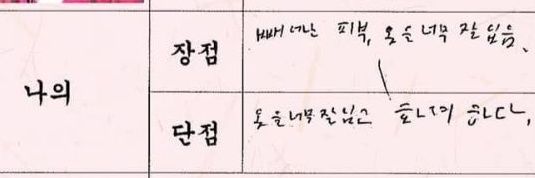 나의
장점
빼어난 피부, 옷을 너무 잘 입음.
단점
옷을 너무 잘 입고